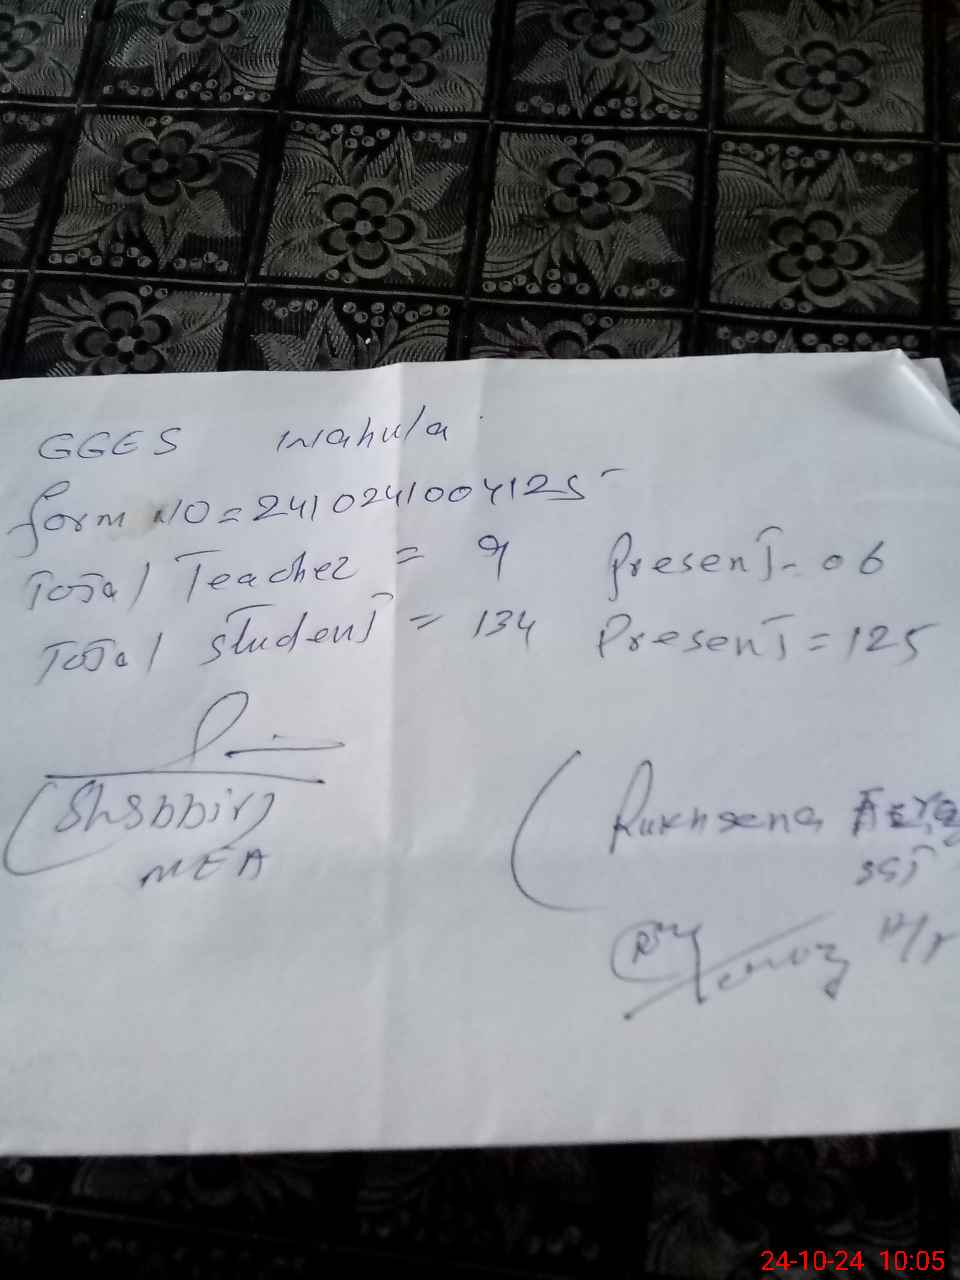 GGES Wahula
form NO = 2410241004125
Total Teacher = 9 Present - 06
Total student = 134 Present = 125
(Shsbbir)
MEA
(Rukhsana
SST
24-10-24 10:05